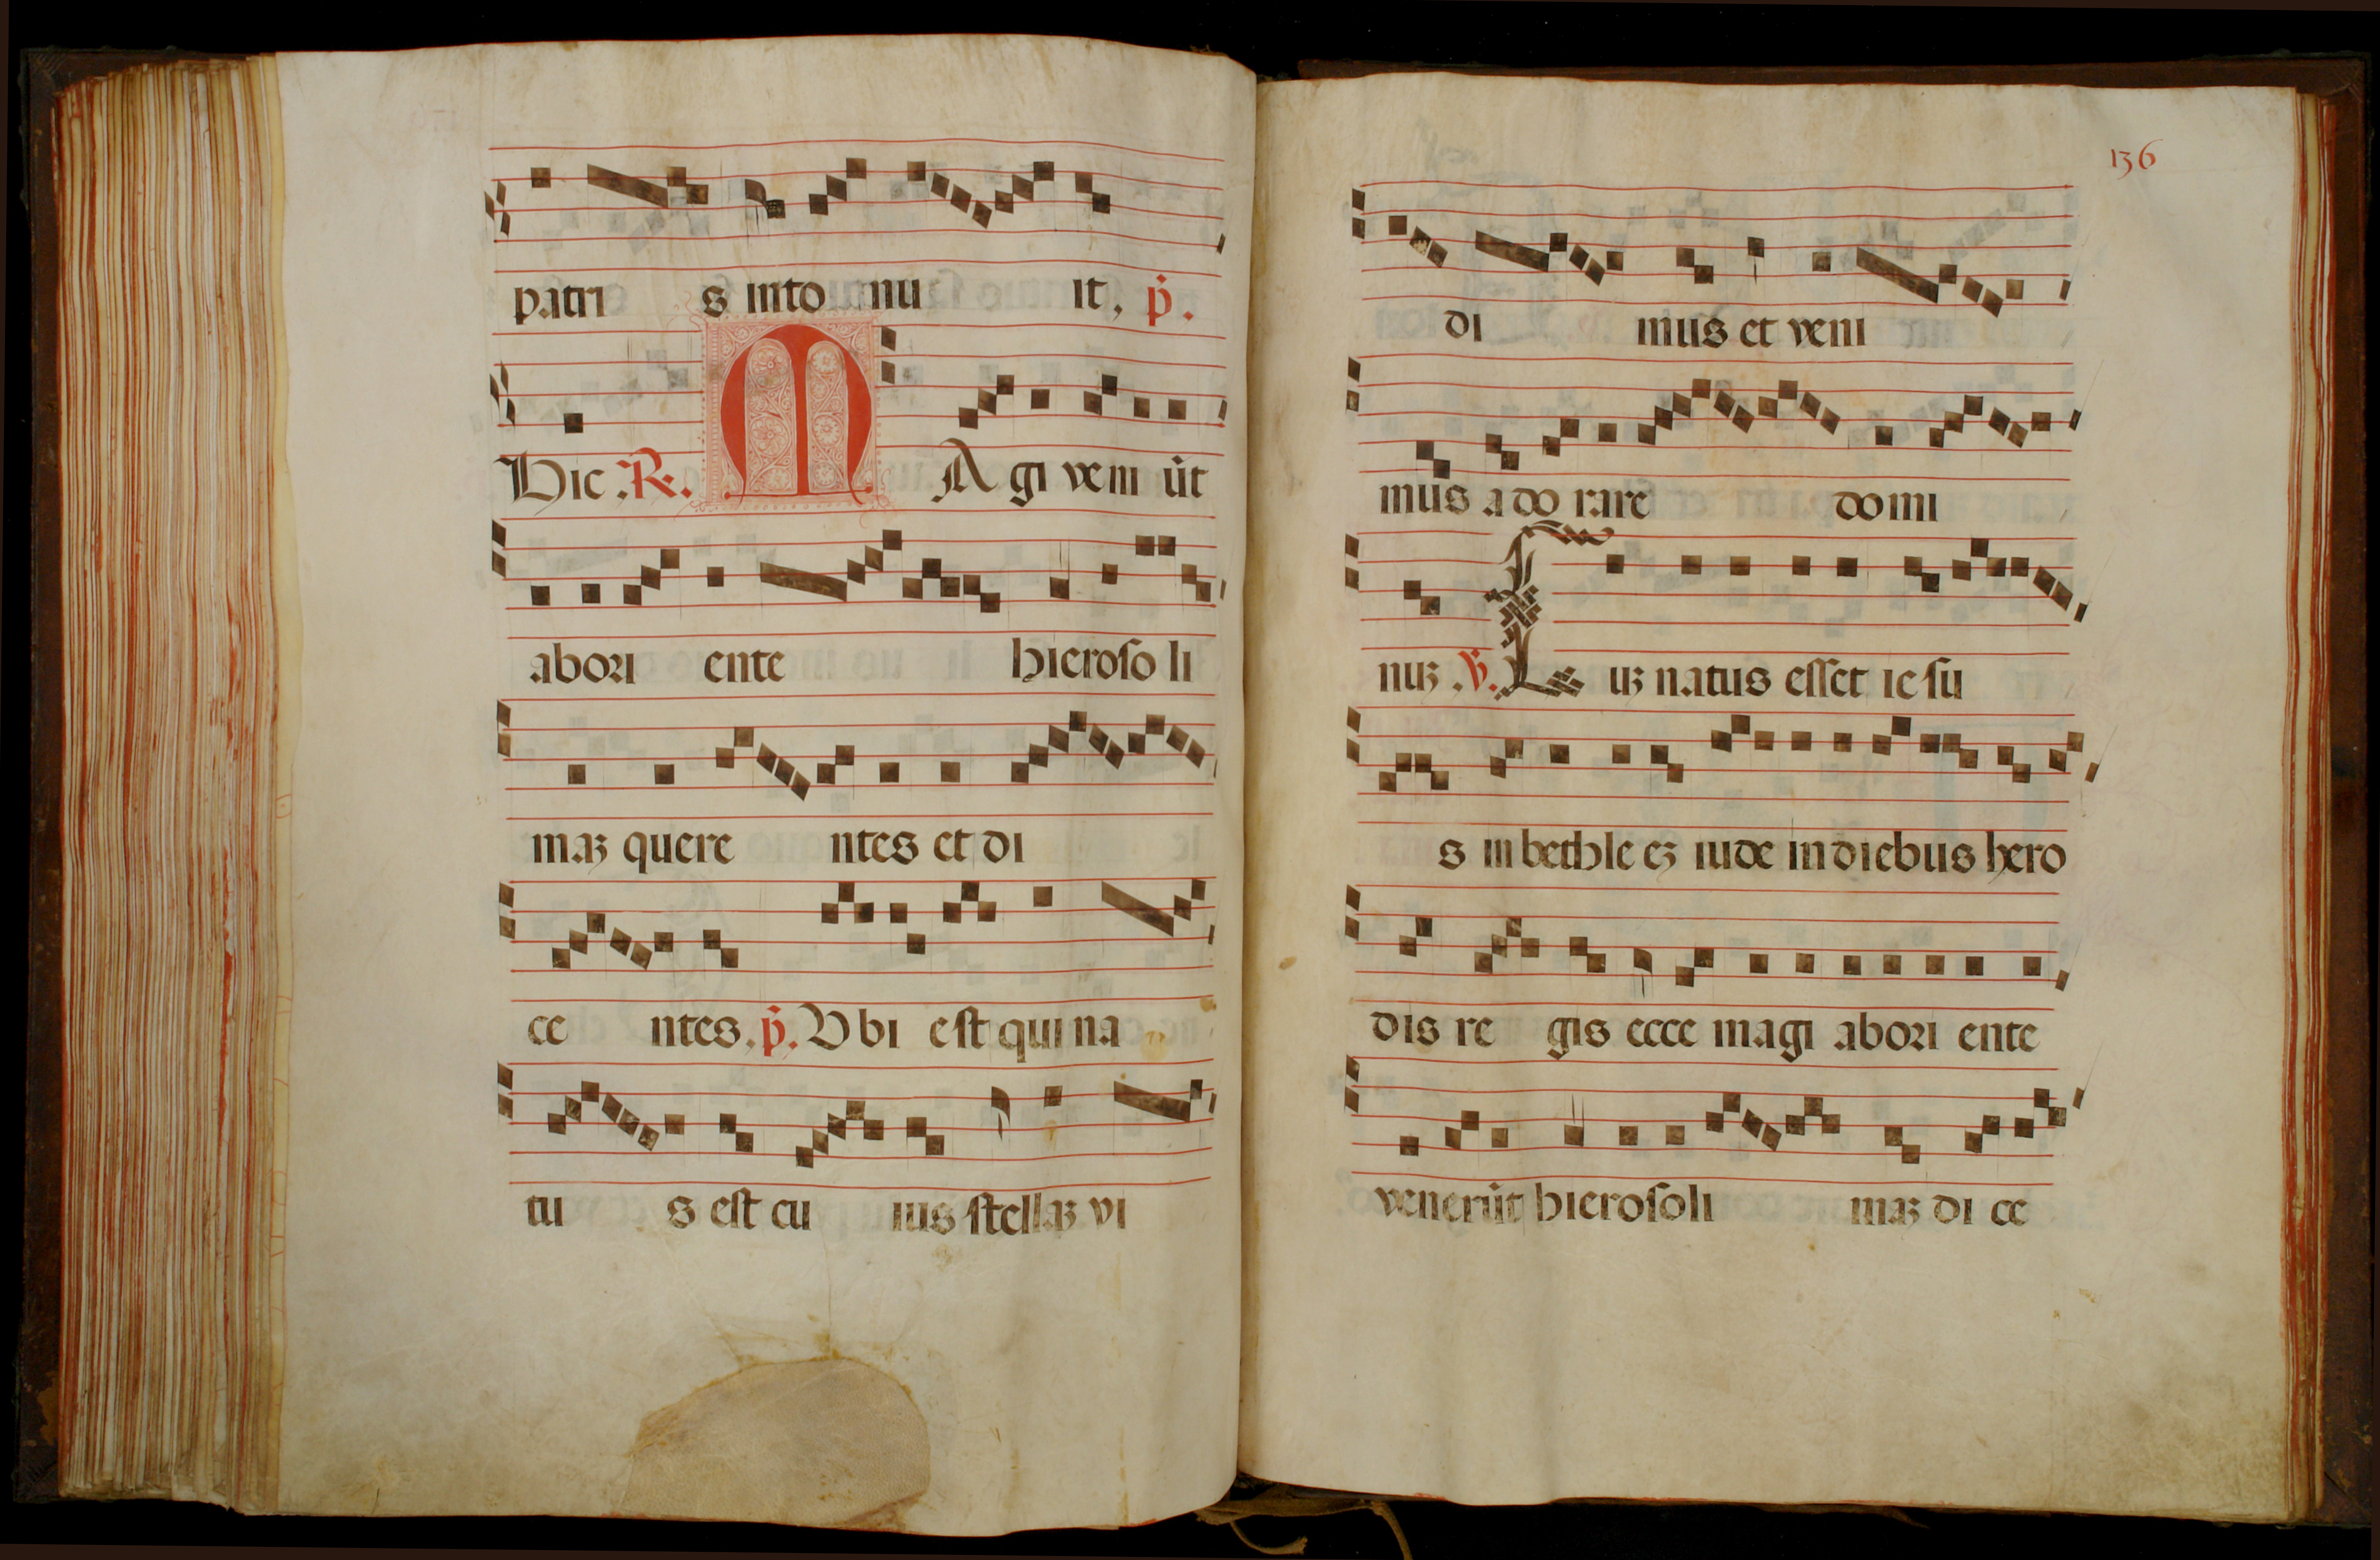 patri s into nu it, p̃.
Hic .℟. M A gi veni ũt
abori ente hieroso li
maꝫ quere ntes et di
ce ntes. p̃. Vbi est qui na
tu s est cu ius stellaꝫ vi
136
di mus et veni
mus ado rare domi
nuꝫ .℣. L uꝫ natus esset iesu
s in bethle eꝫ iude in diebus hero
dis re gis ecce magi abori ente
venerũt hierosoli maꝫ di ce